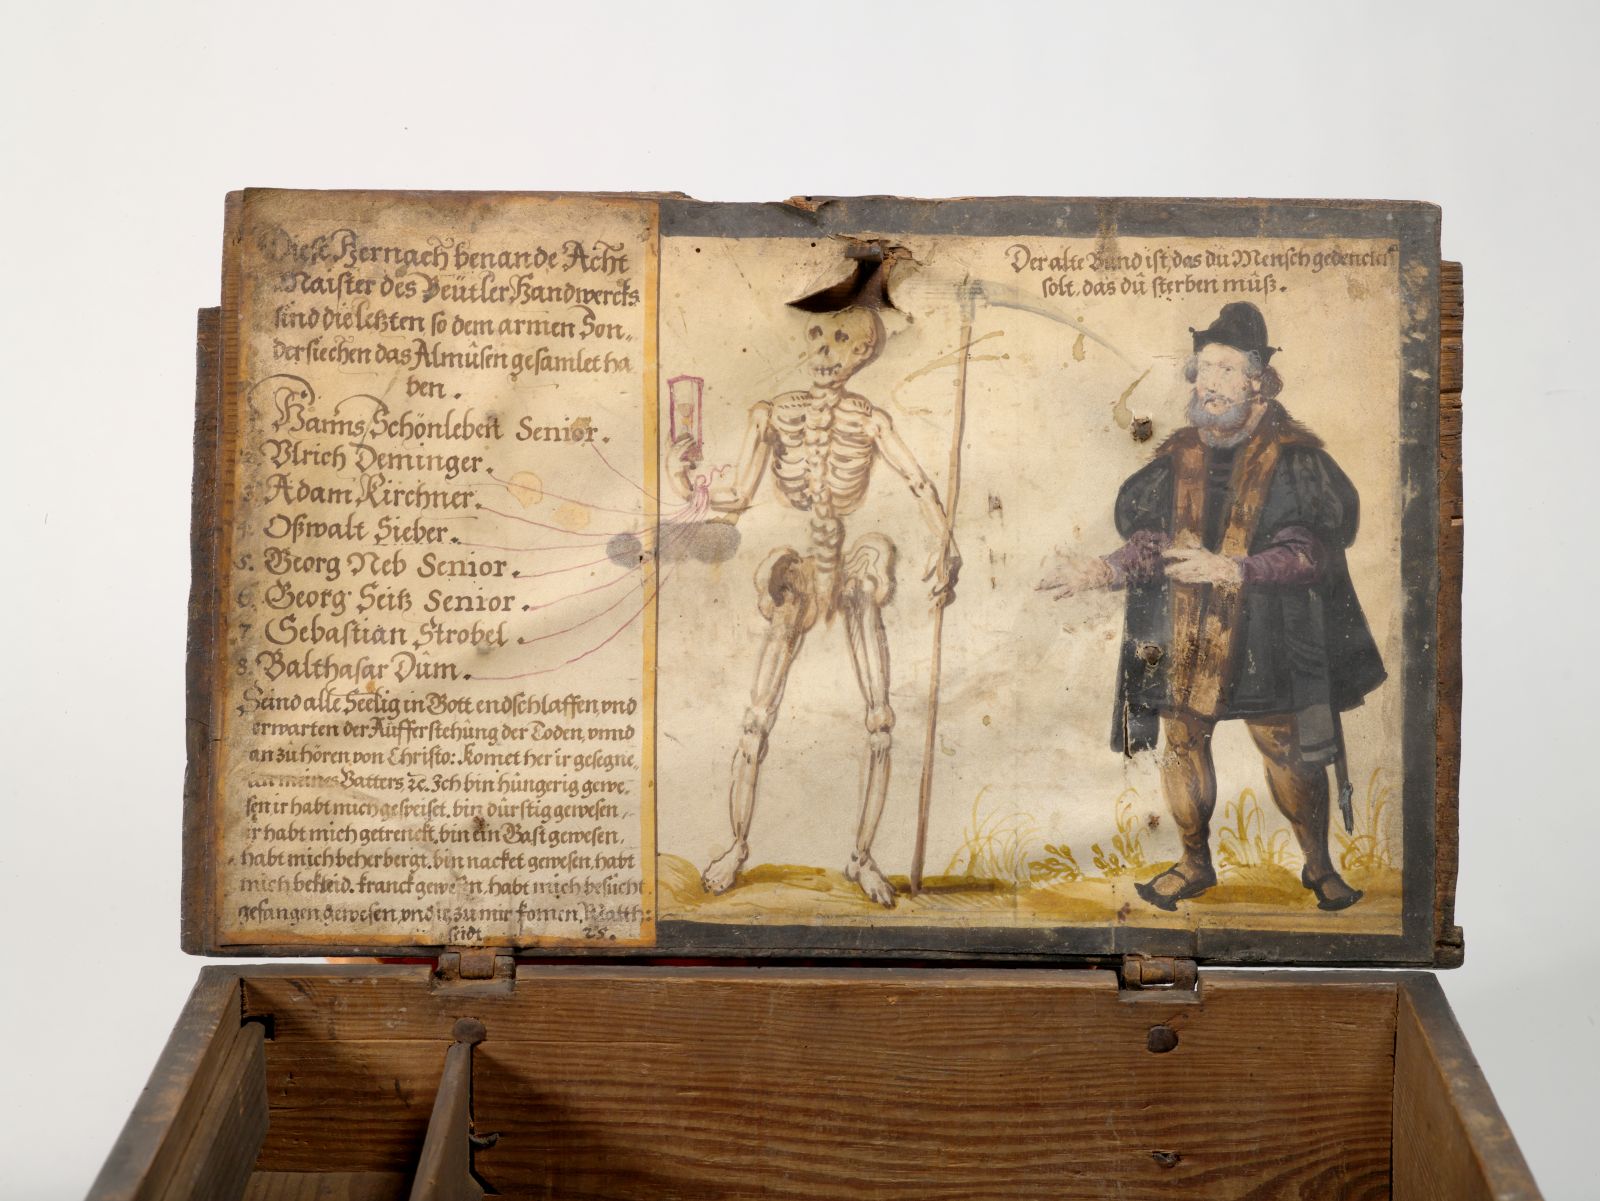 Diese Hernach benande Acht
Maister des Beütler Handwercks
sind die letzten so dem armen Son„
dersiechen das Almûsen gesamlet ha
ben .
1. Hanns Schönleben Senior.
2. Vlrich Deminger.
3. Adam Kirchner.
4. Oßwalt Sieber.
5. Georg Neb Senior.
6. Georg Seitz Senior.
7 Sebastian Strobel.
8. Balthasar Dûm.
Seind alle Seelig in Gott endschlaffen, vnd
erwarten der Aufferstehûng der Toden, vnnd
an zu hören von Christo: Komet her ir gesegne„
meines Vatters ꝛc. Ich bin hûngerig gewe„
sen ir habt mich gespeiset. bin dûrstig gewesen
ir habt mich getrenckt, bin ein Gast gewesen,
habt mich beherbergt. bin nacket gewesen, habt
mich bekleid. kranck gewesen, habt mich besucht
gefangen gewesen, vnd ir zu mir komen. Matth:
seidt 25.
Der alte Bund ist, das dû Mensch gedencken
solt, das dû sterben mûß.